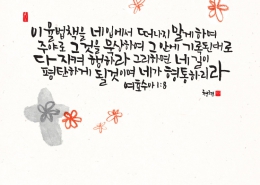 이 율법책을 네 입에서 떠나지 말게 하며
주야로 그것을 묵상하여 그 안에 기록된대로
다 지켜 행하라 그리하면 네 길이
평탄하게 될 것이며 네가 형통하리라
여호수아 1:8